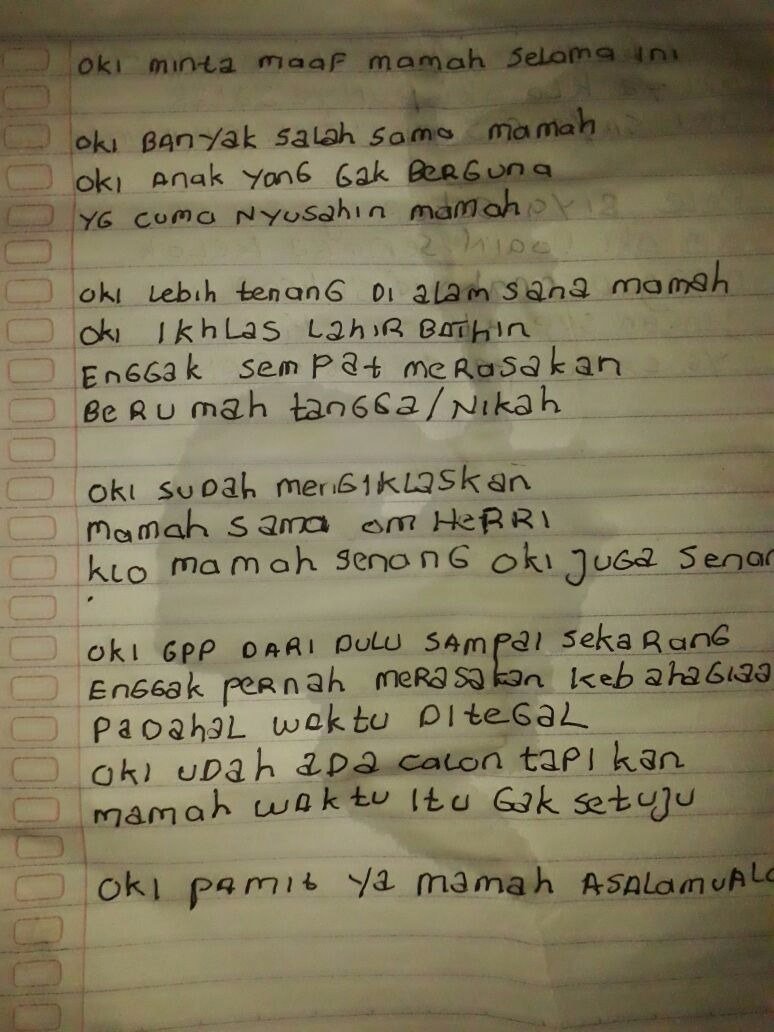 OKI MINTA MAAF MAMAH SELAMA INI
OKI BANYAK SALAH SAMA MAMAH
OKI ANAK YANG GAK BERGUNA
YG CUMA NYUSAHIN MAMAH
OKI LEBIH TENANG DI ALAM SANA MAMAH
OKI IKHLAS LAHIR BATHIN
ENGGAK SEMPAT MERASAKAN
BERUMAH TANGGA/NIKAH
OKI SUDAH MENGIKLASKAN
MAMAH SAMA OM HERRI
KLO MAMAH SENANG OKI JUGA SENAN
OKI GPP DARI DULU SAMPAI SEKARANG
ENGGAK PERNAH MERASAKAN KEBAHAGIAA
PADAHAL WAKTU DITEGAL
OKI UDAH ADA CALON TAPI KAN
MAMAH WAKTU ITU GAK SETUJU
OKI PAMIT YA MAMAH ASALAMUALA